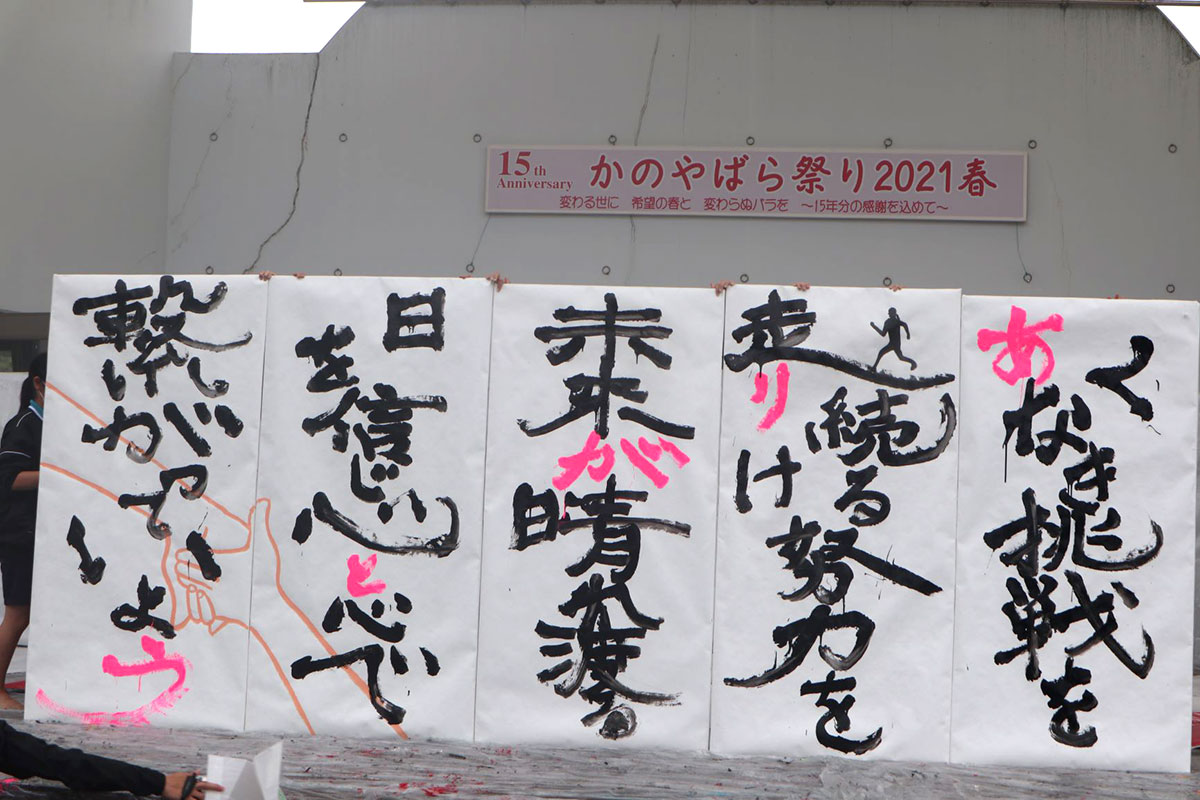 15th Anniversary
かのやばら祭り2021春
変わる世に 希望の春と 変わらぬバラを ～15年分の感謝を込めて～
あくなき挑戦を
走り続ける努力を
未来が晴れ渡る
日を信じ心と心で
繋がっていよう